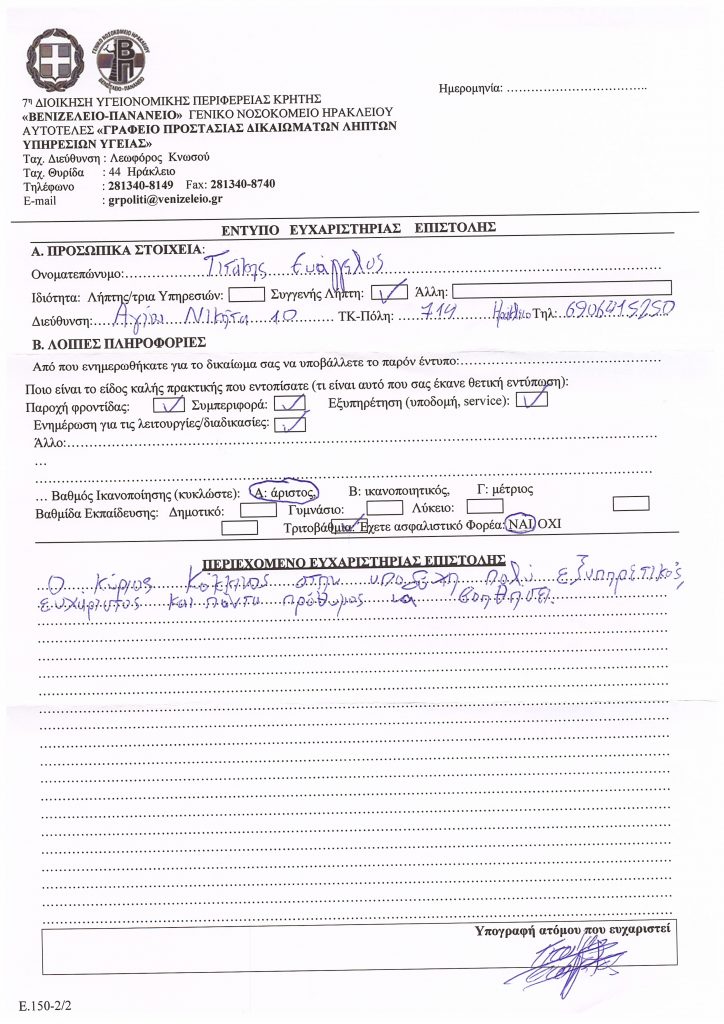 ΓΕΝΙΚΟ ΝΟΣΟΚΟΜΕΙΟ ΗΡΑΚΛΕΙΟΥ
ΒΕΝΙΖΕΛΕΙΟ-ΠΑΝΑΝΕΙΟ
Ημερομηνία: ……………………………….
7η ΔΙΟΙΚΗΣΗ ΥΓΕΙΟΝΟΜΙΚΗΣ ΠΕΡΙΦΕΡΕΙΑΣ ΚΡΗΤΗΣ
«ΒΕΝΙΖΕΛΕΙΟ-ΠΑΝΑΝΕΙΟ» ΓΕΝΙΚΟ ΝΟΣΟΚΟΜΕΙΟ ΗΡΑΚΛΕΙΟΥ
ΑΥΤΟΤΕΛΕΣ «ΓΡΑΦΕΙΟ ΠΡΟΣΤΑΣΙΑΣ ΔΙΚΑΙΩΜΑΤΩΝ ΛΗΠΤΩΝ
ΥΠΗΡΕΣΙΩΝ ΥΓΕΙΑΣ»
Ταχ. Διεύθυνση : Λεωφόρος Κνωσού
Ταχ. Θυρίδα : 44 Ηράκλειο
Τηλέφωνο : 281340-8149 Fax: 281340-8740
E-mail : grpoliti@venizeleio.gr
ΕΝΤΥΠΟ ΕΥΧΑΡΙΣΤΗΡΙΑΣ ΕΠΙΣΤΟΛΗΣ
Α. ΠΡΟΣΩΠΙΚΑ ΣΤΟΙΧΕΙΑ:
Ονοματεπώνυμο: Ευάγγελος
Ιδιότητα: Λήπτης/τρια Υπηρεσιών: Συγγενής Λήπτη: Άλλη:
Διεύθυνση: Αγίου Νικήτα 10 ΤΚ-Πόλη: 714 Ηράκλειο Τηλ: 6906415250
Β. ΛΟΙΠΕΣ ΠΛΗΡΟΦΟΡΙΕΣ
Από που ενημερωθήκατε για το δικαίωμα σας να υποβάλλετε το παρόν έντυπο:
Ποιο είναι το είδος καλής πρακτικής που εντοπίσατε (τι είναι αυτό που σας έκανε θετική εντύπωση):
Παροχή φροντίδας: Συμπεριφορά: Εξυπηρέτηση (υποδομή, service):
Ενημέρωση για τις λειτουργίες/διαδικασίες:
Άλλο:
…
… Βαθμός Ικανοποίησης (κυκλώστε): Α: άριστος, Β: ικανοποιητικός, Γ: μέτριος
Βαθμίδα Εκπαίδευσης: Δημοτικό: Γυμνάσιο: Λύκειο:
Τριτοβάθμια: Έχετε ασφαλιστικό Φορέα: ΝΑΙ ΟΧΙ
ΠΕΡΙΕΧΟΜΕΝΟ ΕΥΧΑΡΙΣΤΗΡΙΑΣ ΕΠΙΣΤΟΛΗΣ
Ο κύριος Κόκκινος στην υποδοχή πολύ εξυπηρετικός,
ευχάριστος και πάντα πρόθυμος να βοηθήσει.
Υπογραφή ατόμου που ευχαριστεί
Ε.150-2/2